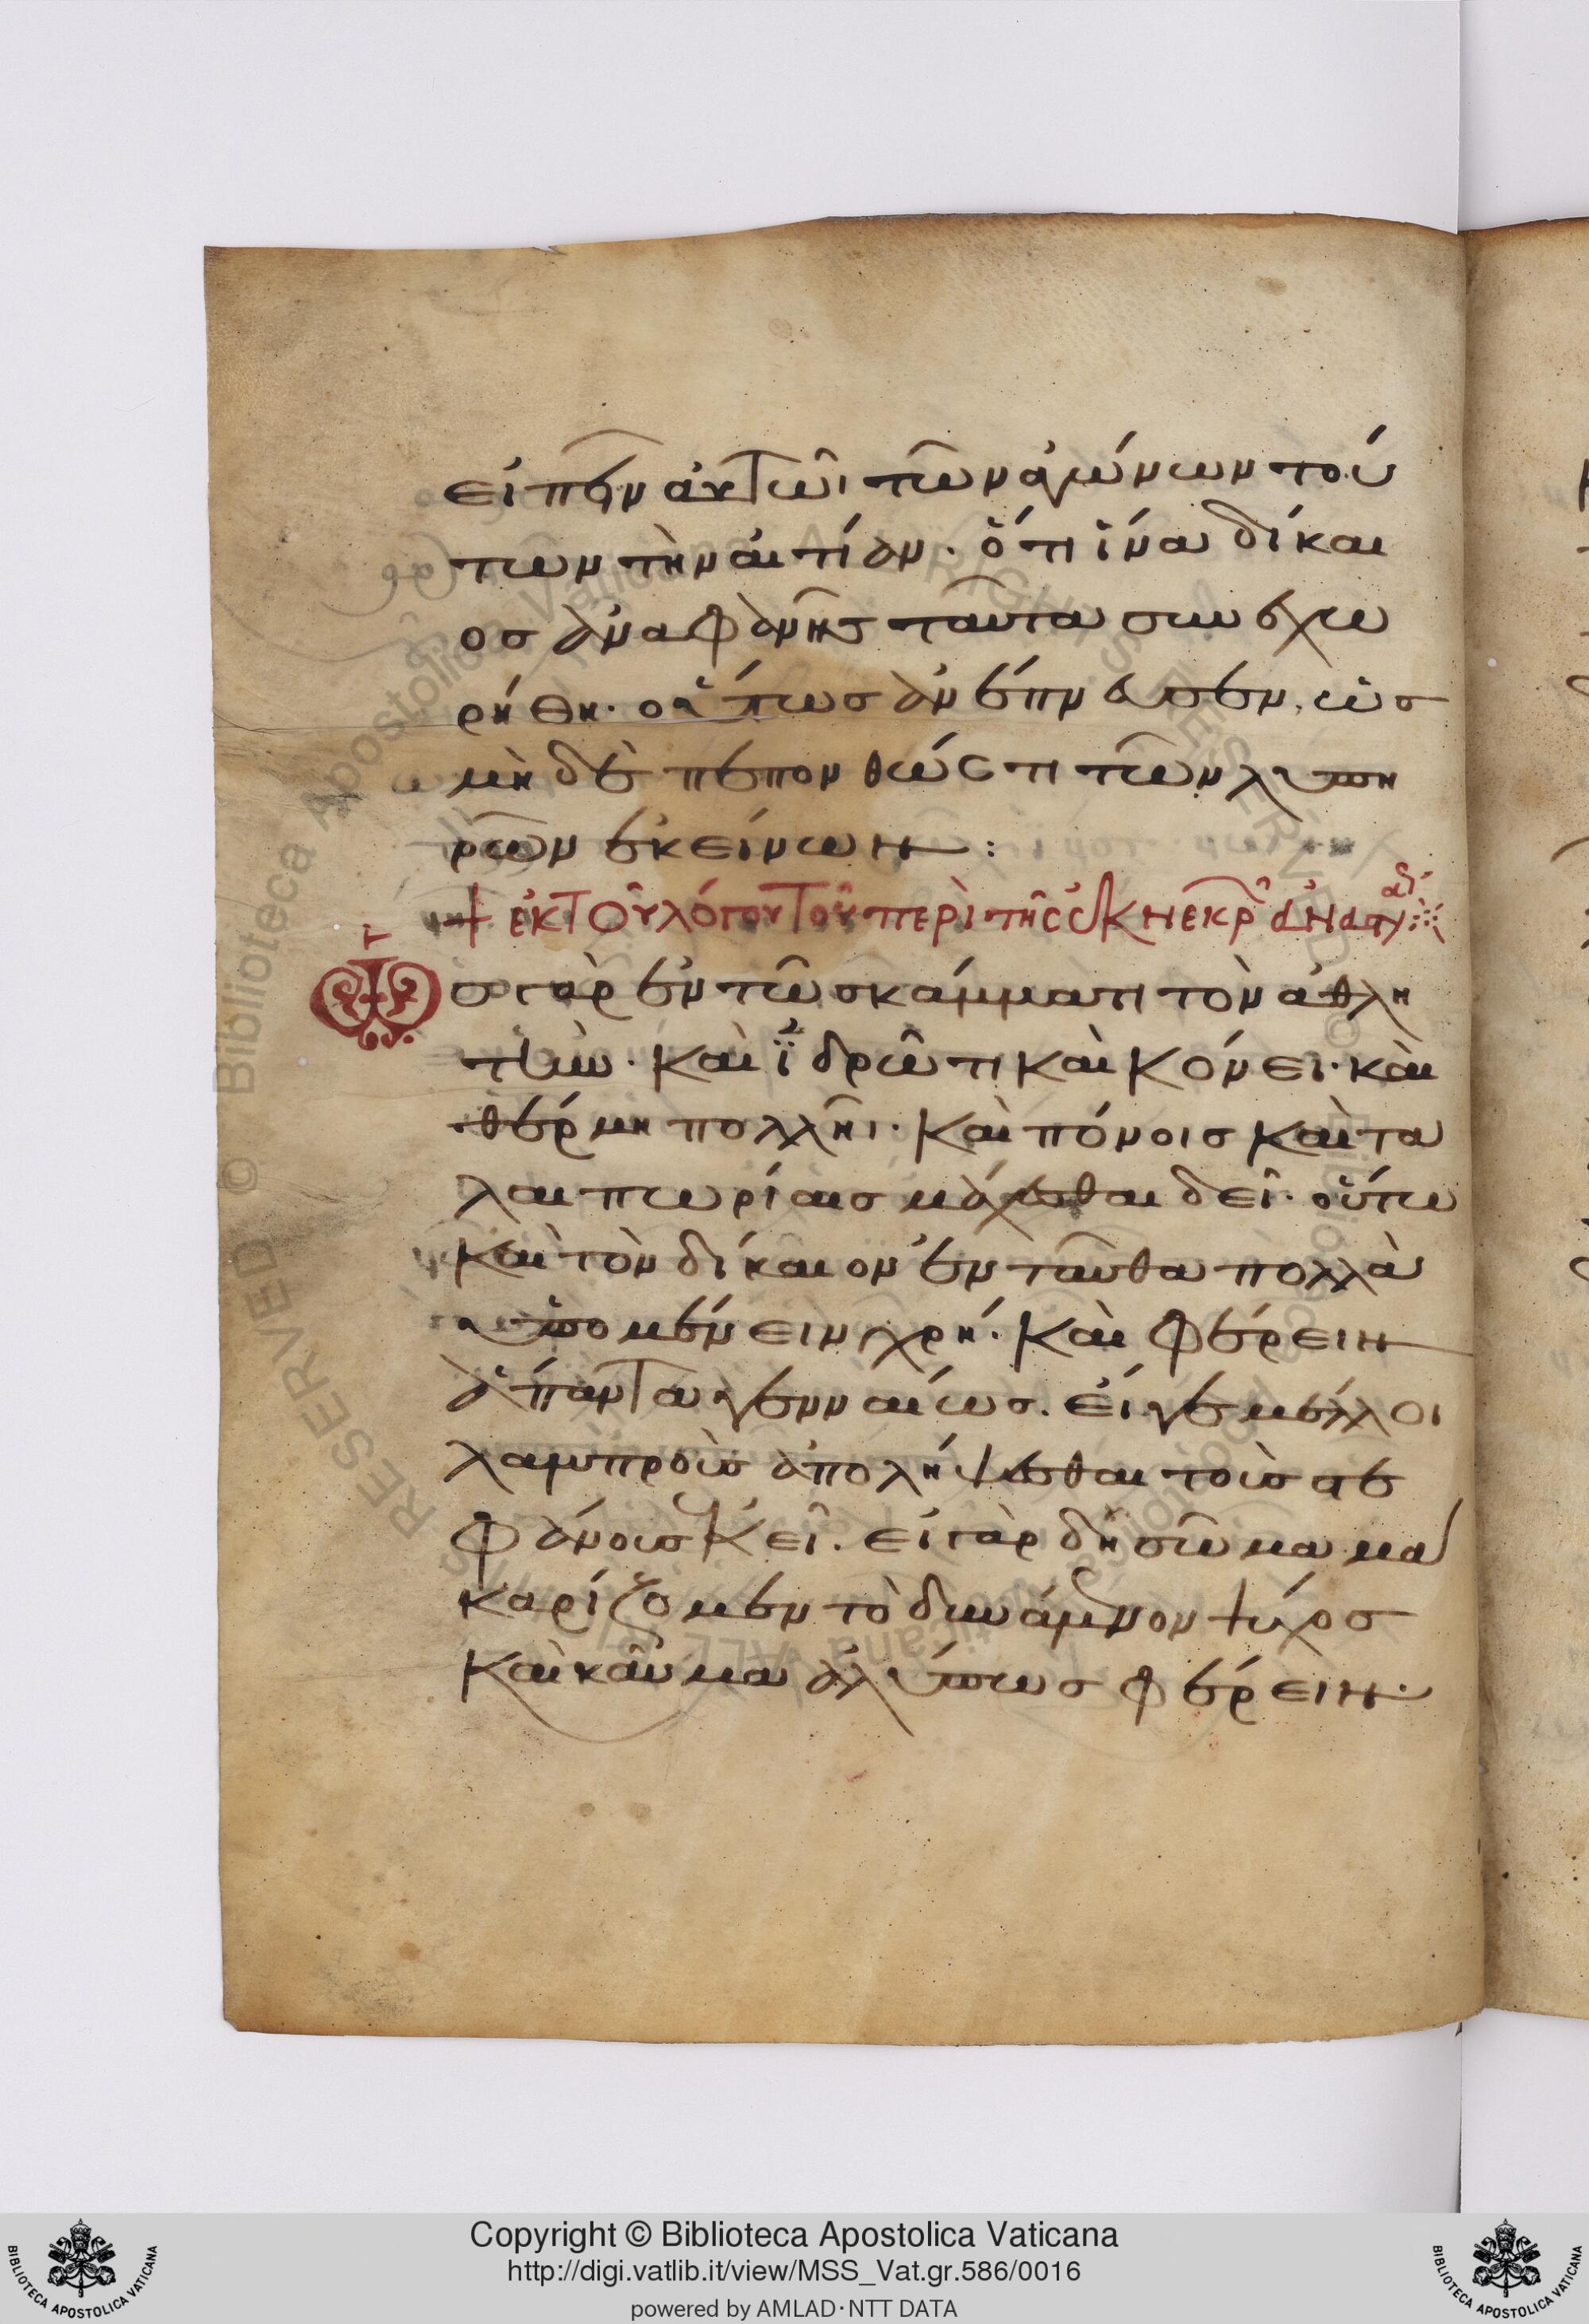 εἶπεν αὐτῶι τῶν ἀγώνων τού
των τὴν αἰτίαν· ὅτι ἵνα δίκαι
ος ἀναφανῆς ταῦτα συνεχω
ρήθη· οὕτως ἀνέπνευσεν, ὡς
μηδὲ πεπονθώς τι τῶν λυπη
ρῶν ἐκείνων:
+ ἐκ τοῦ λόγου τοῦ περὶ τῆς ἐκ νεκρ ἀναστ
Ὥσ γὰρ ἐν τῶ σκάμματι τὸν ἀθλη
τὴν· καὶ ἱδρῶτι καὶ κόνει· καὶ
θέρμη πολλῆι· καὶ πόνοις καὶ τα
λαιπωρίαις μάχεσθαι δεῖ· οὕτω
καὶ τὸν δίκαιον ἐνταῦθα πολλὰ
ὑπομένειν χρή· καὶ φέρειν
ἅπαντα γενναίως. εἴγε μέλλοι
λαμπροὺς ἀπολήψεσθαι τοὺς στε
φάνους ἐκεῖ. εἰ γὰρ δὴ σῶμα μα
καρίζομεν τὸ δυνάμενον ψύχος
καὶ καῦμα ἀλύπως φέρειν·
Copyright © Biblioteca Apostolica Vaticana
http://digi.vatlib.it/view/MSS_Vat.gr.586/0016
powered by AMLAD·NTT DATA
BIBLIOTECA APOSTOLICA VATICANA
BIBLIOTECA APOSTOLICA VATICANA